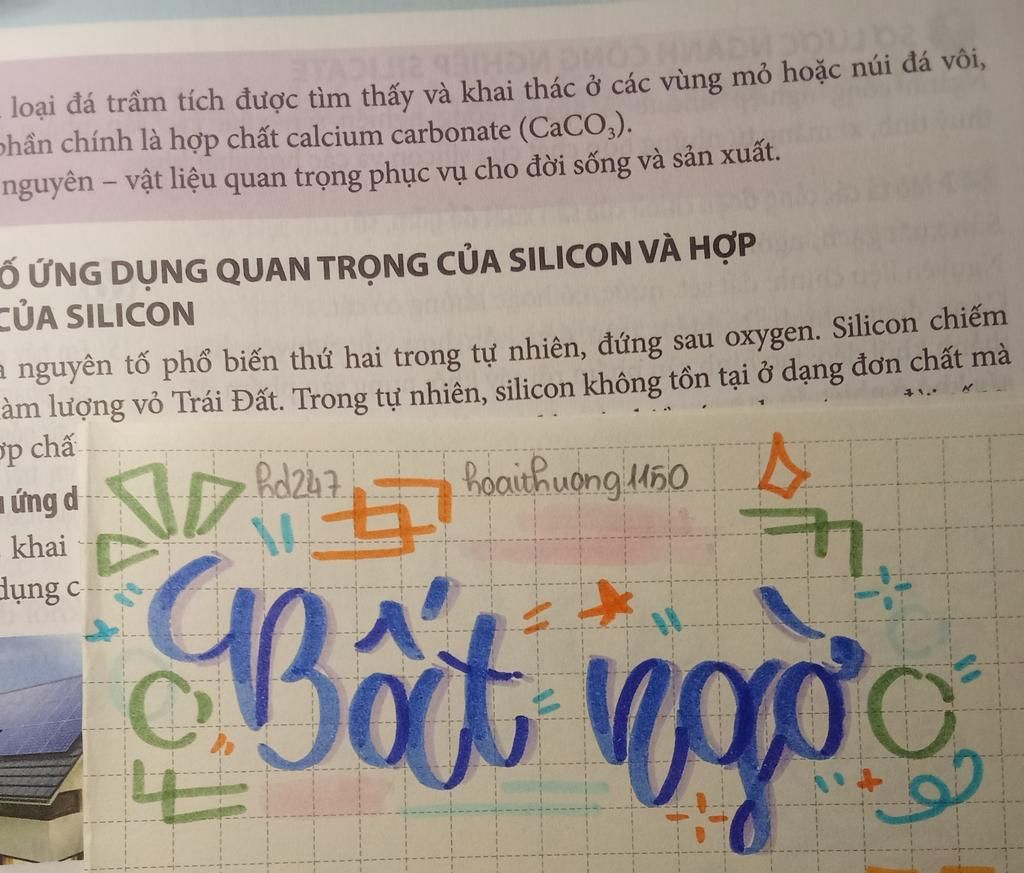 loại đá trầm tích được tìm thấy và khai thác ở các vùng mỏ hoặc núi đá vôi,
phần chính là hợp chất calcium carbonate (CaCO₃).
nguyên – vật liệu quan trọng phục vụ cho đời sống và sản xuất.
Ố ỨNG DỤNG QUAN TRỌNG CỦA SILICON VÀ HỢP
CỦA SILICON
nguyên tố phổ biến thứ hai trong tự nhiên, đứng sau oxygen. Silicon chiếm
àm lượng vỏ Trái Đất. Trong tự nhiên, silicon không tồn tại ở dạng đơn chất mà
ợp chấ
ứng d
khai
dụng c
hd247 hoaithuong1150
Bất ngờ